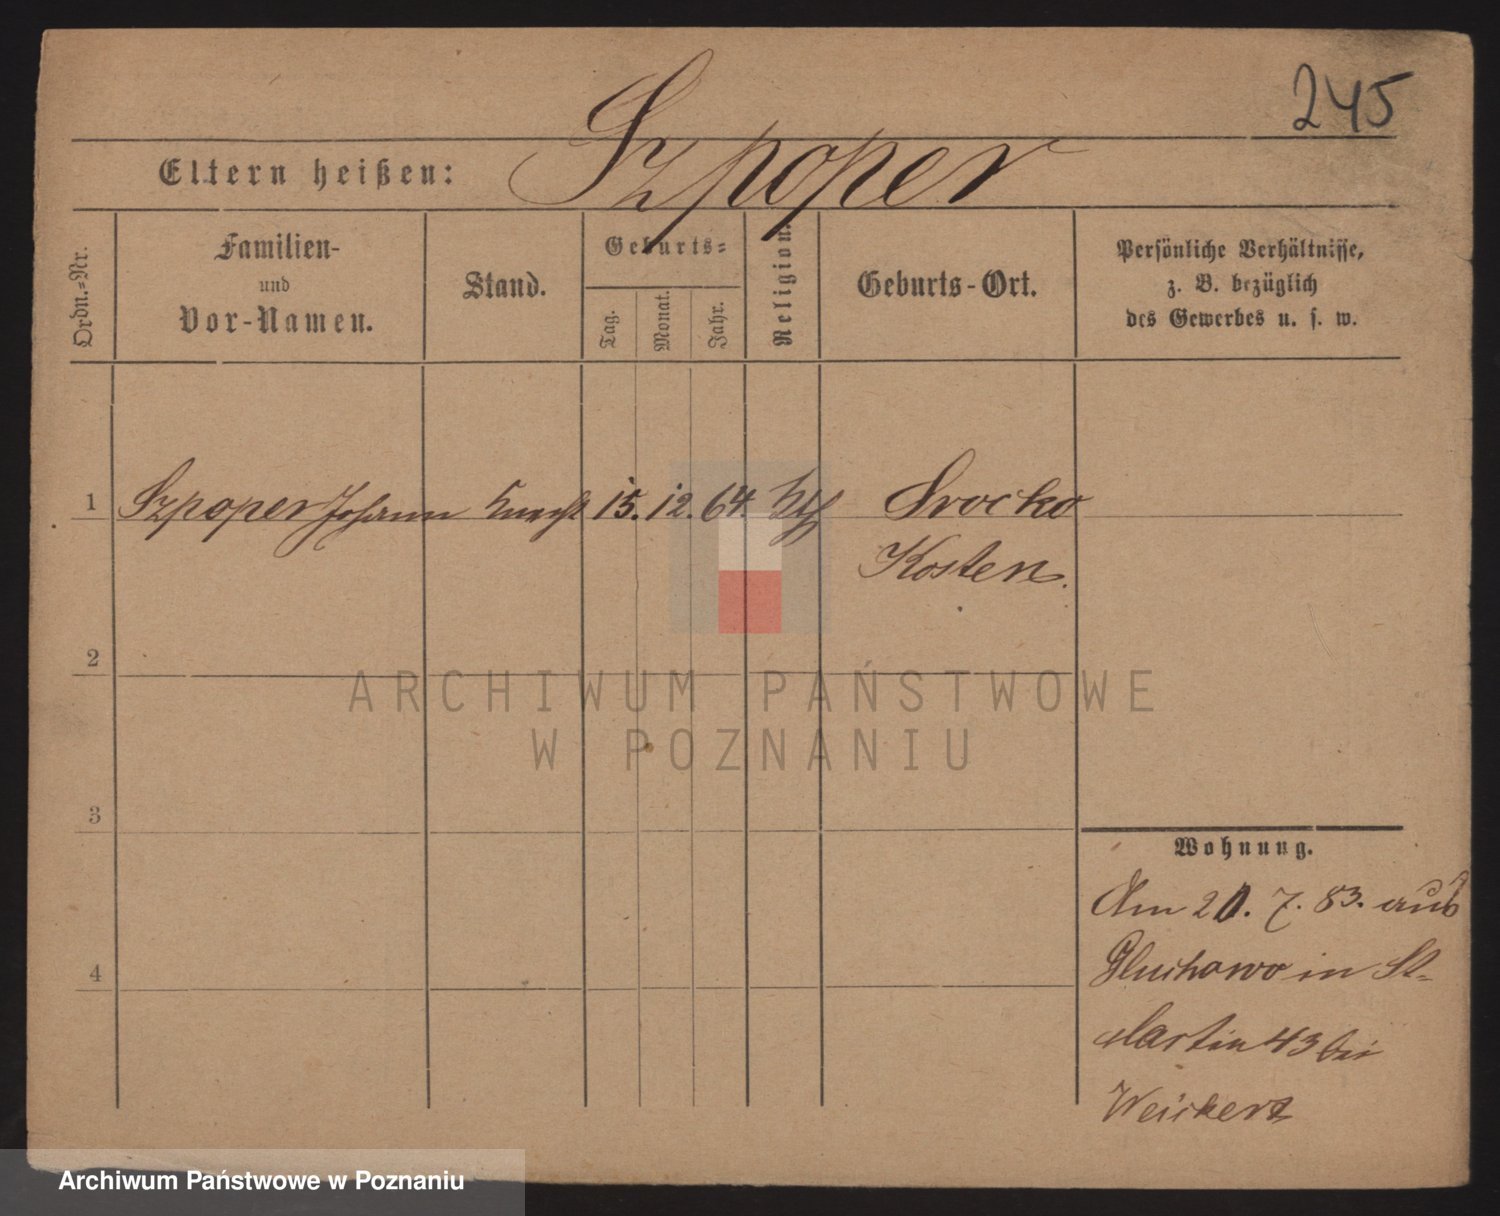 245
Szpoper
Eltern heißen:
Ordn.-Nr.
Familien-
und
Vor-Namen.
Stand.
Geburts-
Tag.
Monat.
Jahr.
Religion.
Geburts-Ort.
Persönliche Verhältnisse,
z. B. bezüglich
des Gewerbes u. s. w.
1 Szpoper Johann Knecht 15. 12. 64. kth Srocko
Kosten.
2
3
4
Wohnung.
Am 20. 7. 83. aus
Gluchowo in St-
Martin 43 bei
Weickert
ARCHIWUM PAŃSTWOWE
W POZNANIU
Archiwum Państwowe w Poznaniu